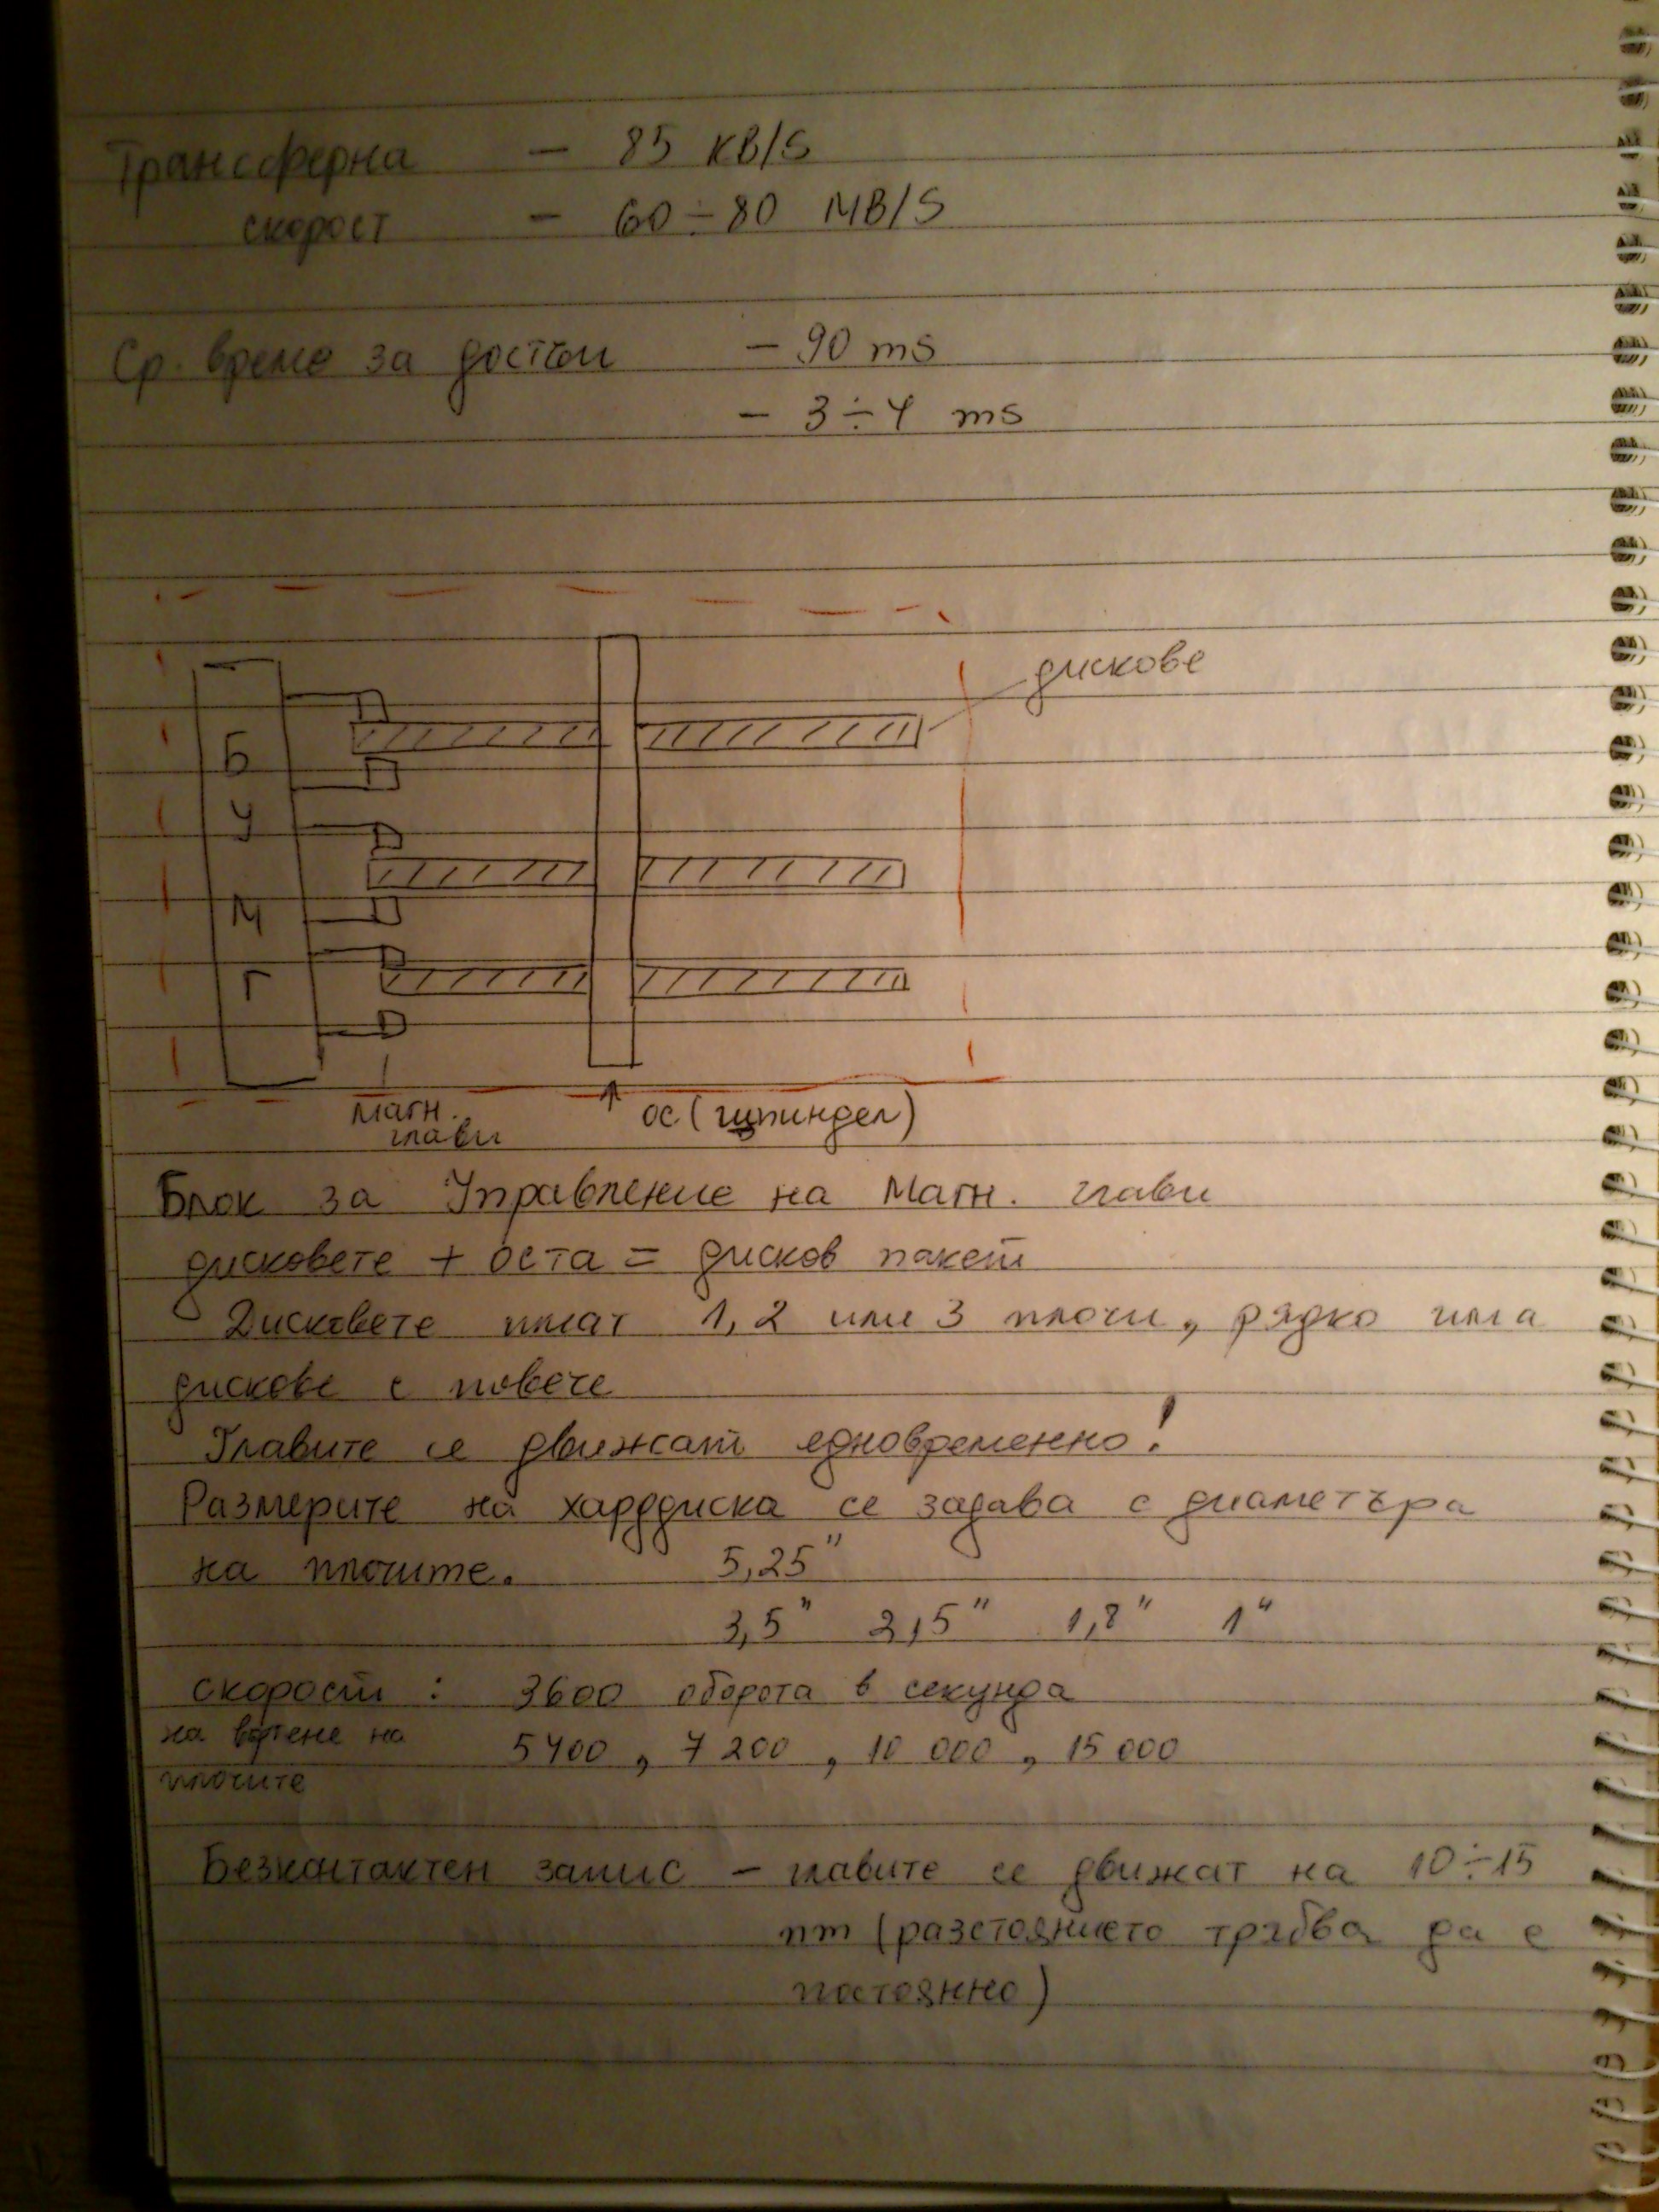 Трансферна – 85 KB/S
скорост – 60÷80 MB/S
Ср. време за достъп – 90 ms
– 3÷4 ms
дискове
Б
У
М
Г
магн.
глави
ос (шпиндел)
Блок за Управление на Магн. глави
дисковете + оста = дисков пакет
Дисковете имат 1, 2 или 3 плочи, рядко има
дискове с повече
Главите се движат едновременно!
Размерите на харддиска се задава с диаметъра
на плочите. 5,25"
3,5" 2,5" 1,8" 1"
скорост : 3600 оборота в секунда
на въртене на 5400, 7 200, 10 000, 15 000
плочите
Безконтактен запис – главите се движат на 10÷15
nm (разстоянието трябва да е
постоянно)